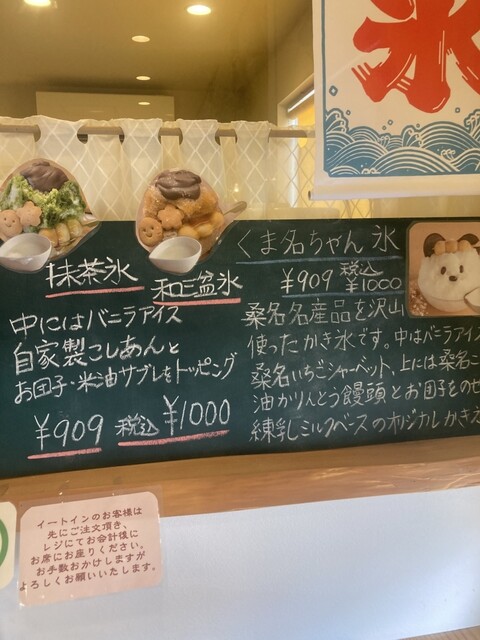 氷
抹茶氷
和三盆氷
中にはバニラアイス
自家製こしあんと
お団子・米油サブレをトッピング
¥909 税込 ¥1000
くま名ちゃん 氷
¥909 税込 ¥1000
桑名名産品を沢山
使ったかき氷です。中はバニラアイス
桑名いちごシャーベット、上には桑名こ
油かりんとう饅頭とお団子をのせ
練乳ミルクベースのオリジナルかきえ
イートインのお客様は
先にご注文頂き、
レジにてお会計後に
お席にお座りください。
お手数おかけしますが
よろしくお願いいたします。